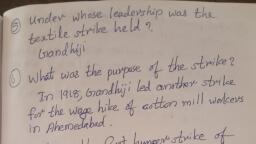 ⑤ Under whose leadership was the
textile strike held?
Gandhiji
What was the purpose of the strike?
In 1918, Gandhiji led another strike
for the wage hike of cotton mill workers
in Ahemedabad.
hunger strike of